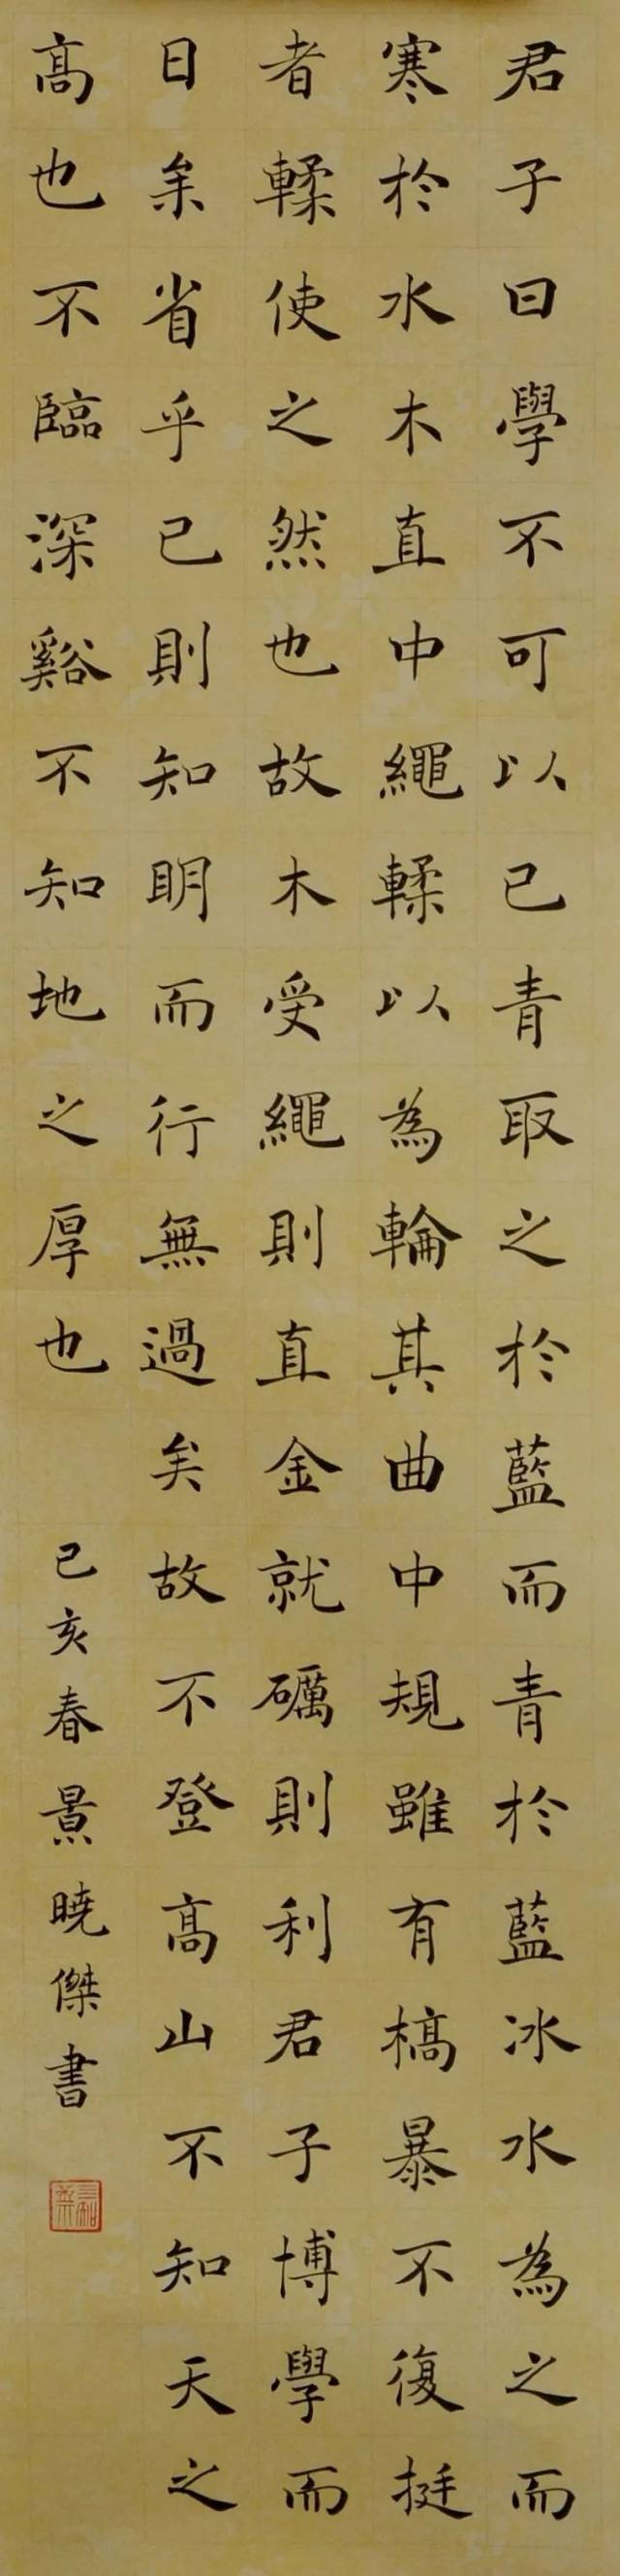 君子曰學不可以已青取之於藍而青於藍冰水為之而
寒於水木直中繩輮以為輪其曲中規雖有槁暴不復挺
者輮使之然也故木受繩則直金就礪則利君子博學而
日叅省乎己則知明而行無過矣故不登高山不知天之
高也不臨深谿不知地之厚也
己亥春景曉傑書